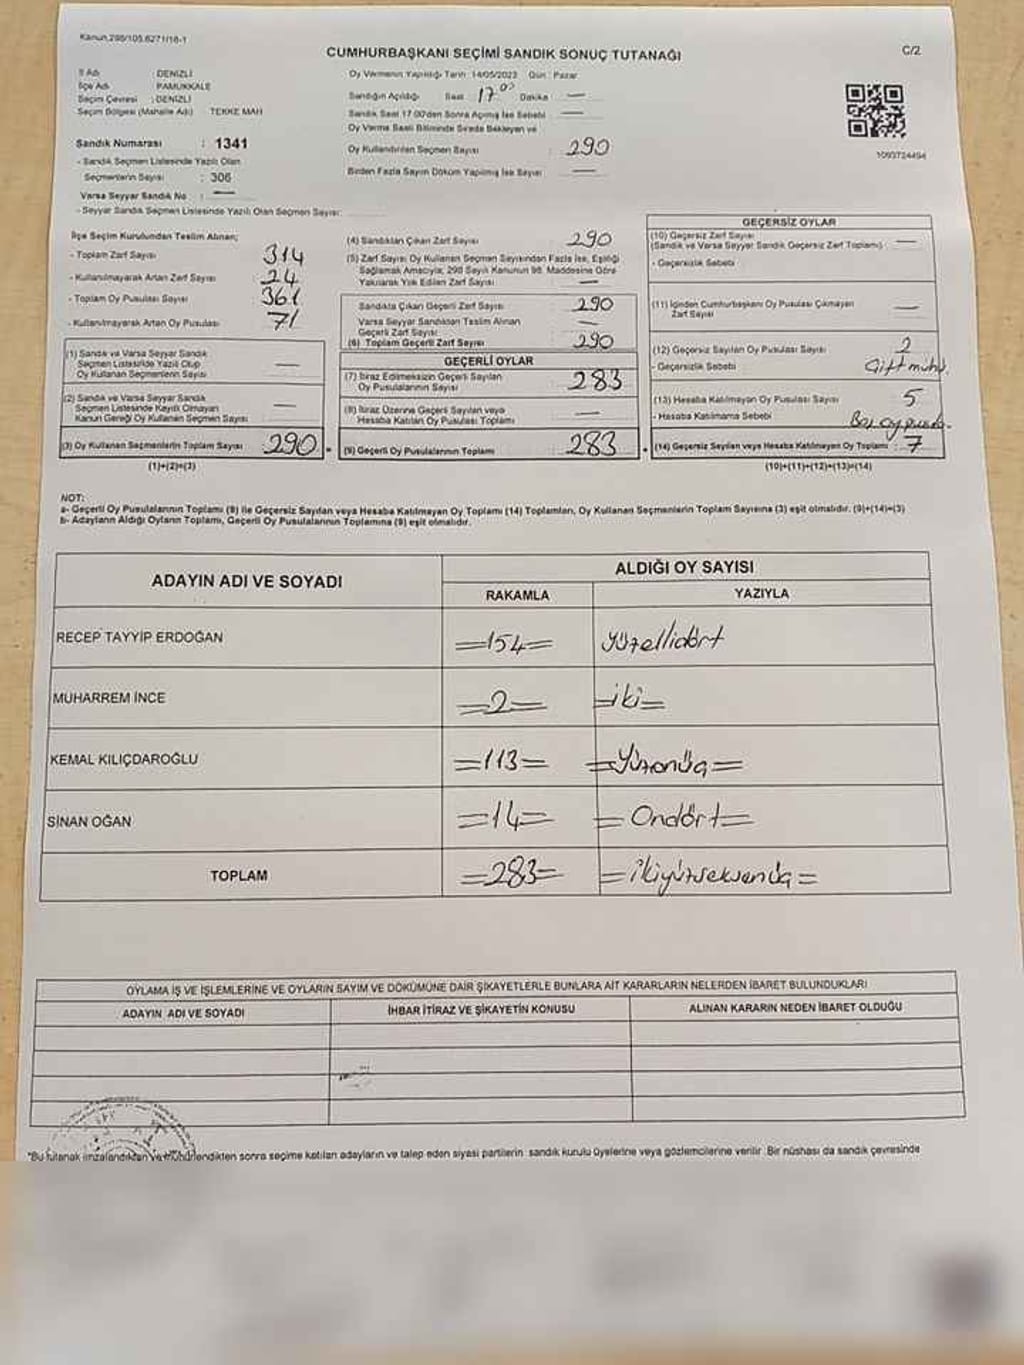 Kanun.298/105.6271/16-1
CUMHURBAŞKANI SEÇİMİ SANDIK SONUÇ TUTANAĞI
C/2
İl Adı DENİZLİ
İlçe Adı PAMUKKALE
Seçim Çevresi : DENİZLİ
Seçim Bölgesi (Mahalle Adı) TEKKE MAH
Sandık Numarası : 1341
- Sandık Seçmen Listesinde Yazılı Olan
Seçmenlerin Sayısı : 306
Varsa Seyyar Sandık No : —
- Seyyar Sandık Seçmen Listesinde Yazılı Olan Seçmen Sayısı:
Oy Vermenin Yapıldığı Tarih : 14/05/2023 Gün : Pazar
Sandığın Açıldığı Saat 17.00 Dakika : —
Sandık Saat 17.00'den Sonra Açılmış İse Sebebi —
Oy Verme Saati Bitiminde Sırada Bekleyen ve
Oy Kullandırılan Seçmen Sayısı : 290
Birden Fazla Sayım Döküm Yapılmış İse Sayısı : —
1093724494
İlçe Seçim Kurulundan Teslim Alınan;
- Toplam Zarf Sayısı 314
- Kullanılmayarak Artan Zarf Sayısı 24
- Toplam Oy Pusulası Sayısı 361
- Kullanılmayarak Artan Oy Pusulası 71
(1) Sandık ve Varsa Seyyar Sandık
Seçmen Listesinde Yazılı Olup
Oy Kullanan Seçmenlerin Sayısı —
(2) Sandık ve Varsa Seyyar Sandık
Seçmen Listesinde Kayıtlı Olmayan
Kanun Gereği Oy Kullanan Seçmen Sayısı —
(3) Oy Kullanan Seçmenlerin Toplam Sayısı 290
(1)+(2)=(3)
(4) Sandıktan Çıkan Zarf Sayısı 290
(5) Zarf Sayısı Oy Kullanan Seçmen Sayısından Fazla İse, Eşitliği
Sağlamak Amacıyla; 298 Sayılı Kanunun 98. Maddesine Göre
Yakılarak Yok Edilen Zarf Sayısı —
Sandıkta Çıkan Geçerli Zarf Sayısı 290
Varsa Seyyar Sandıktan Teslim Alınan
Geçerli Zarf Sayısı —
(6) Toplam Geçerli Zarf Sayısı 290
GEÇERLİ OYLAR
(7) İtiraz Edilmeksizin Geçerli Sayılan
Oy Pusulalarının Sayısı 283
(8) İtiraz Üzerine Geçerli Sayılan veya
Hesaba Katılan Oy Pusulası Toplamı —
(9) Geçerli Oy Pusulalarının Toplamı 283
GEÇERSİZ OYLAR
(10) Geçersiz Zarf Sayısı
(Sandık ve Varsa Seyyar Sandık Geçersiz Zarf Toplamı) —
- Geçersizlik Sebebi
(11) İçinden Cumhurbaşkanı Oy Pusulası Çıkmayan
Zarf Sayısı —
(12) Geçersiz Sayılan Oy Pusulası Sayısı 2
- Geçersizlik Sebebi : Çift mühü.
(13) Hesaba Katılmayan Oy Pusulası Sayısı 5
- Hesaba Katılmama Sebebi Boş oy pusula.
(14) Geçersiz Sayılan veya Hesaba Katılmayan Oy Toplamı : 7
(10)+(11)+(12)+(13)=(14)
NOT:
a- Geçerli Oy Pusulalarının Toplamı (9) ile Geçersiz Sayılan veya Hesaba Katılmayan Oy Toplamı (14) Toplamları, Oy Kullanan Seçmenlerin Toplam Sayısına (3) eşit olmalıdır. (9)+(14)=(3)
b- Adayların Aldığı Oyların Toplamı, Geçerli Oy Pusulalarının Toplamına (9) eşit olmalıdır.
ADAYIN ADI VE SOYADI
ALDIĞI OY SAYISI
RAKAMLA YAZIYLA
RECEP TAYYİP ERDOĞAN =154= Yüzellidört
MUHARREM İNCE =2= =iki=
KEMAL KILIÇDAROĞLU =113= =Yüzonüç=
SİNAN OĞAN =14= =Ondört=
TOPLAM =283= =İkiyüzseksenüç=
OYLAMA İŞ VE İŞLEMLERİNE VE OYLARIN SAYIM VE DÖKÜMÜNE DAİR ŞİKAYETLERLE BUNLARA AİT KARARLARIN NELERDEN İBARET BULUNDUKLARI
ADAYIN ADI VE SOYADI İHBAR İTİRAZ VE ŞİKAYETİN KONUSU ALINAN KARARIN NEDEN İBARET OLDUĞU
*Bu tutanak imzalandıktan ve mühürlendikten sonra seçime katılan adayların ve talep eden siyasi partilerin sandık kurulu üyelerine veya gözlemcilerine verilir. Bir nüshası da sandık çevresinde